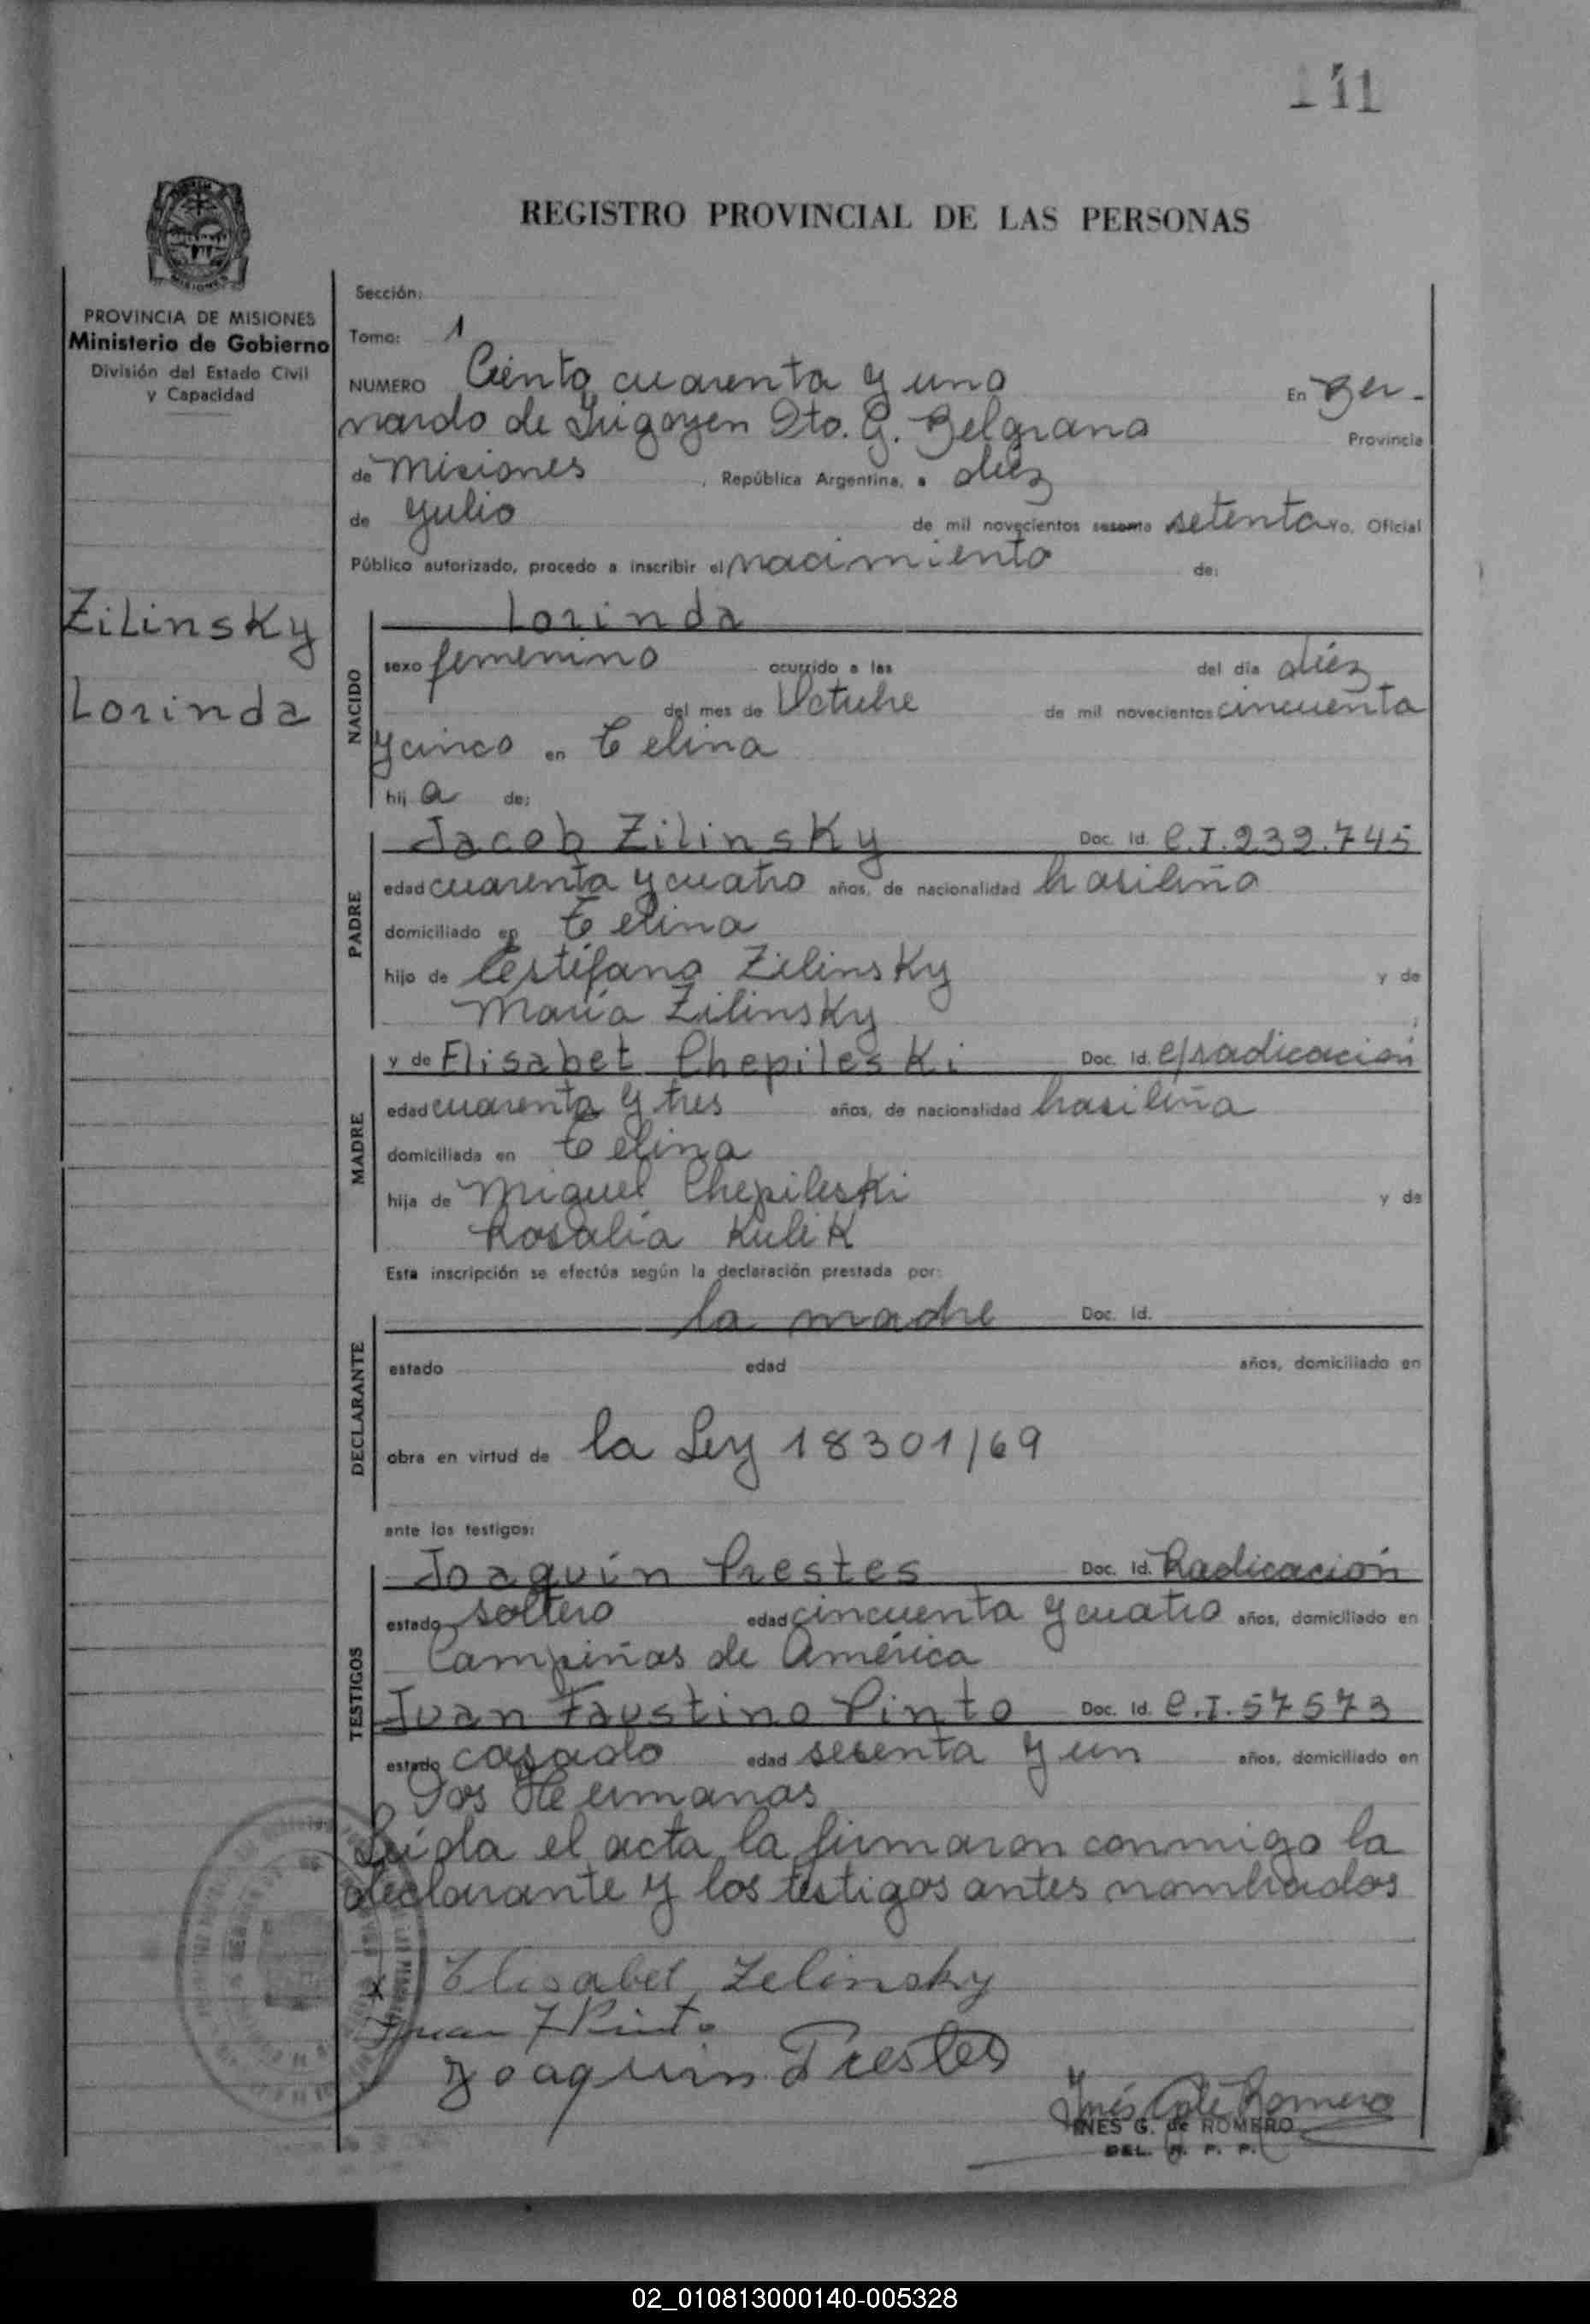 141
REGISTRO PROVINCIAL DE LAS PERSONAS
PROVINCIA DE MISIONES
Ministerio de Gobierno
División del Estado Civil
y Capacidad
Zilinsky
Lorinda
Sección:
Tomo: 1
NUMERO Ciento cuarenta y uno En Ber-
nardo de Irigoyen Dto. G. Belgrano Provincia
de Misiones, República Argentina, a diez
de Julio de mil novecientos sesenta setenta Yo, Oficial
Público autorizado, procedo a inscribir el nacimiento de:
NACIDO
Lorinda
sexo femenino ocurrido a las del día diéz
del mes de Octubre de mil novecientos cincuenta
y cinco en Celina
hij a de:
PADRE
Jacob Zilinsky Doc. Id. C.I.232.745
edad cuarenta y cuatro años, de nacionalidad brasileño
domiciliado en Celina
hijo de Cestéfano Zilinsky y de
María Zilinsky
MADRE
y de Elisabet Chepileski Doc. Id. c/radicación
edad cuarenta y tres años, de nacionalidad brasileña
domiciliada en Celina
hija de Miguel Chepileski y de
Rosalía Kulik
Esta inscripción se efectúa según la declaración prestada por:
DECLARANTE
la madre Doc. Id.
estado edad años, domiciliado en
obra en virtud de la Ley 18301/69
ante los testigos:
TESTIGOS
Joaquín Prestes Doc. Id. Radicación
estado soltero edad cincuenta y cuatro años, domiciliado en
Campiñas de América
Juan Faustino Pinto Doc. Id. C.I.57573
estado casado edad sesenta y un años, domiciliado en
Dos Hermanas
Leída el acta, la firmaron conmigo la
declarante y los testigos antes nombrados
x Elisabet Zelinsky
Juan F Pinto
Joaquin Prestes
Inés Romero
INES G. de ROMERO
DEL. R. P. P.
02_010813000140-005328